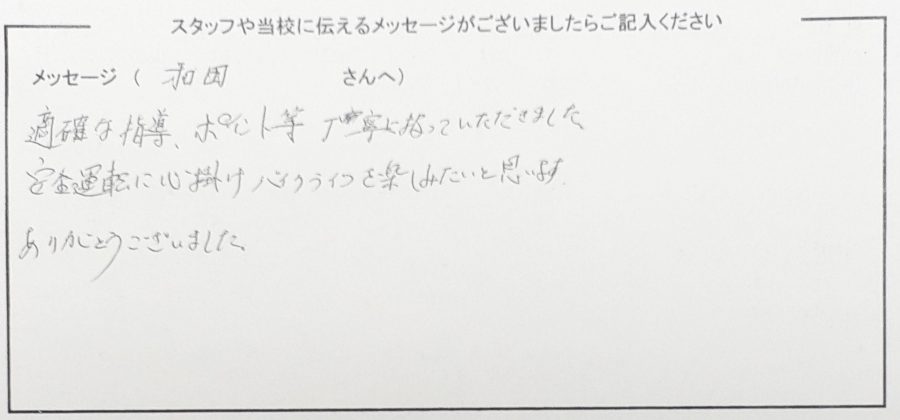 スタッフや当校に伝えるメッセージがございましたらご記入ください
メッセージ ( 和田 さんへ)
適確な指導、ポイント等 丁寧に教っていただきました、
安全運転に心掛けバイクライフを楽しみたいと思います.
ありがとうございました、